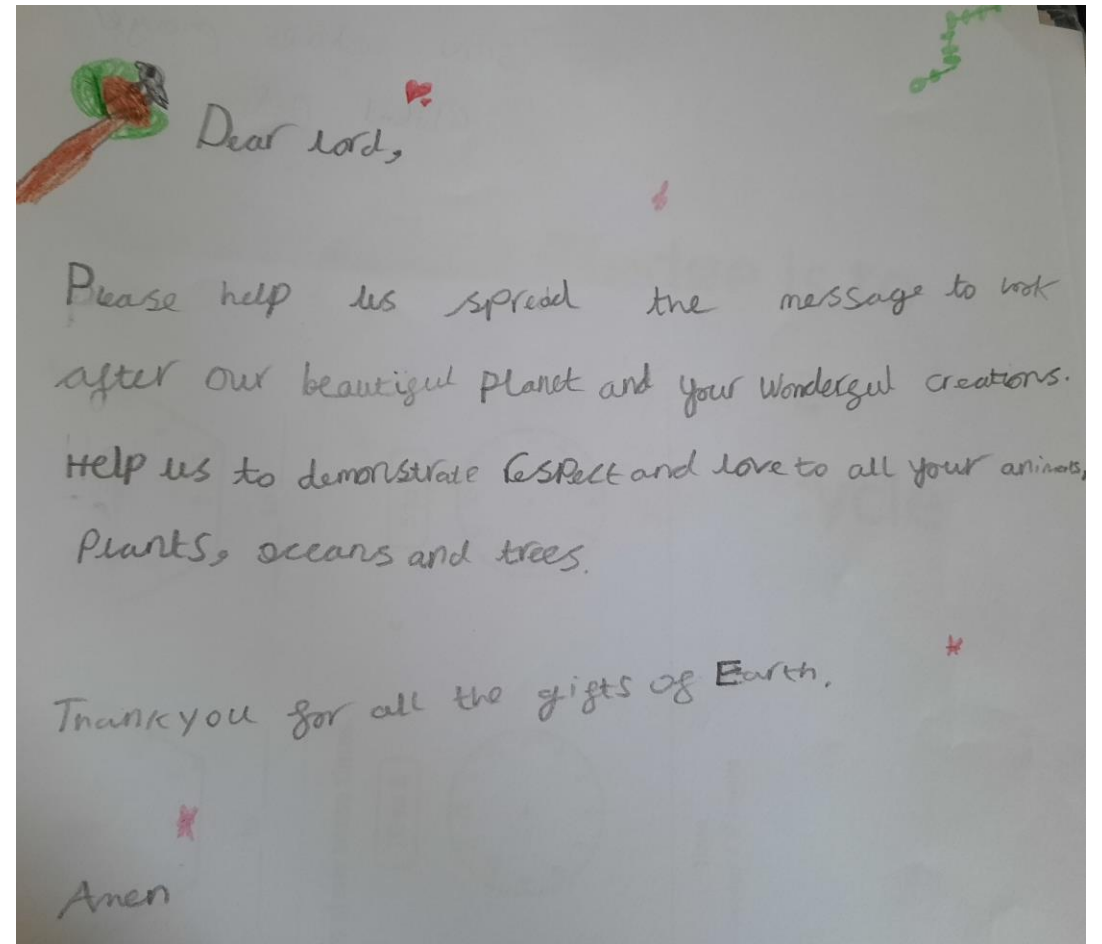 Dear Lord,
Please help us spread the message to look
after our beautiful planet and your wonderful creations.
Help us to demonstrate respect and love to all your animals,
Plants, oceans and trees.
Thankyou for all the gifts of Earth.
Amen